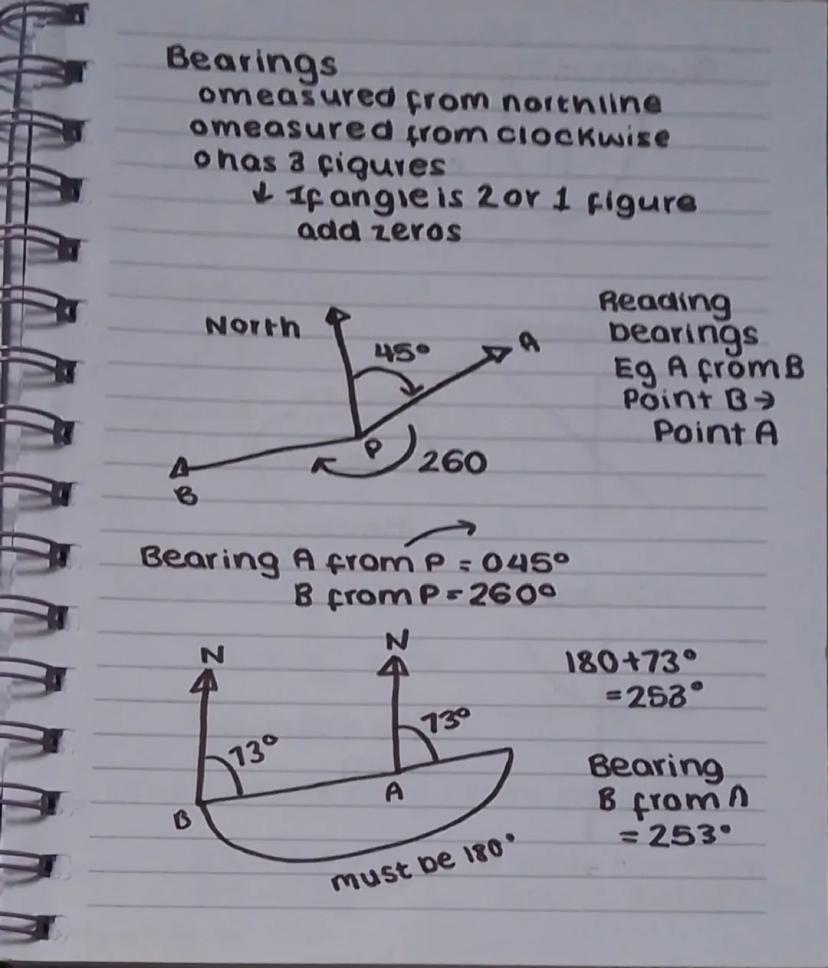 Bearings
o measured from northline
o measured from clockwise
o has 3 figures
↓ If angle is 2 or 1 figure
add zeros
North
45°
A
P
260
B
Reading
bearings
Eg A from B
Point B →
Point A
Bearing A from P = 045°
B from P = 260°
N
N
73°
73°
B
A
must be 180°
180+73°
=253°
Bearing
B from A
=253°